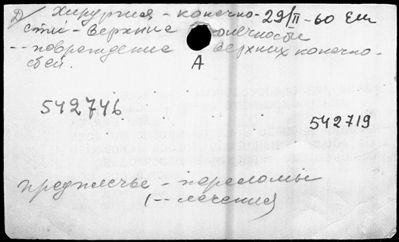 Д) Хирургия - конечно- 29/II-60 Еш
сти - верхние конечности
-- повреждение верхних конечно-
стей.
А
542746
542719
предплечье - переломы
(-- лечение)